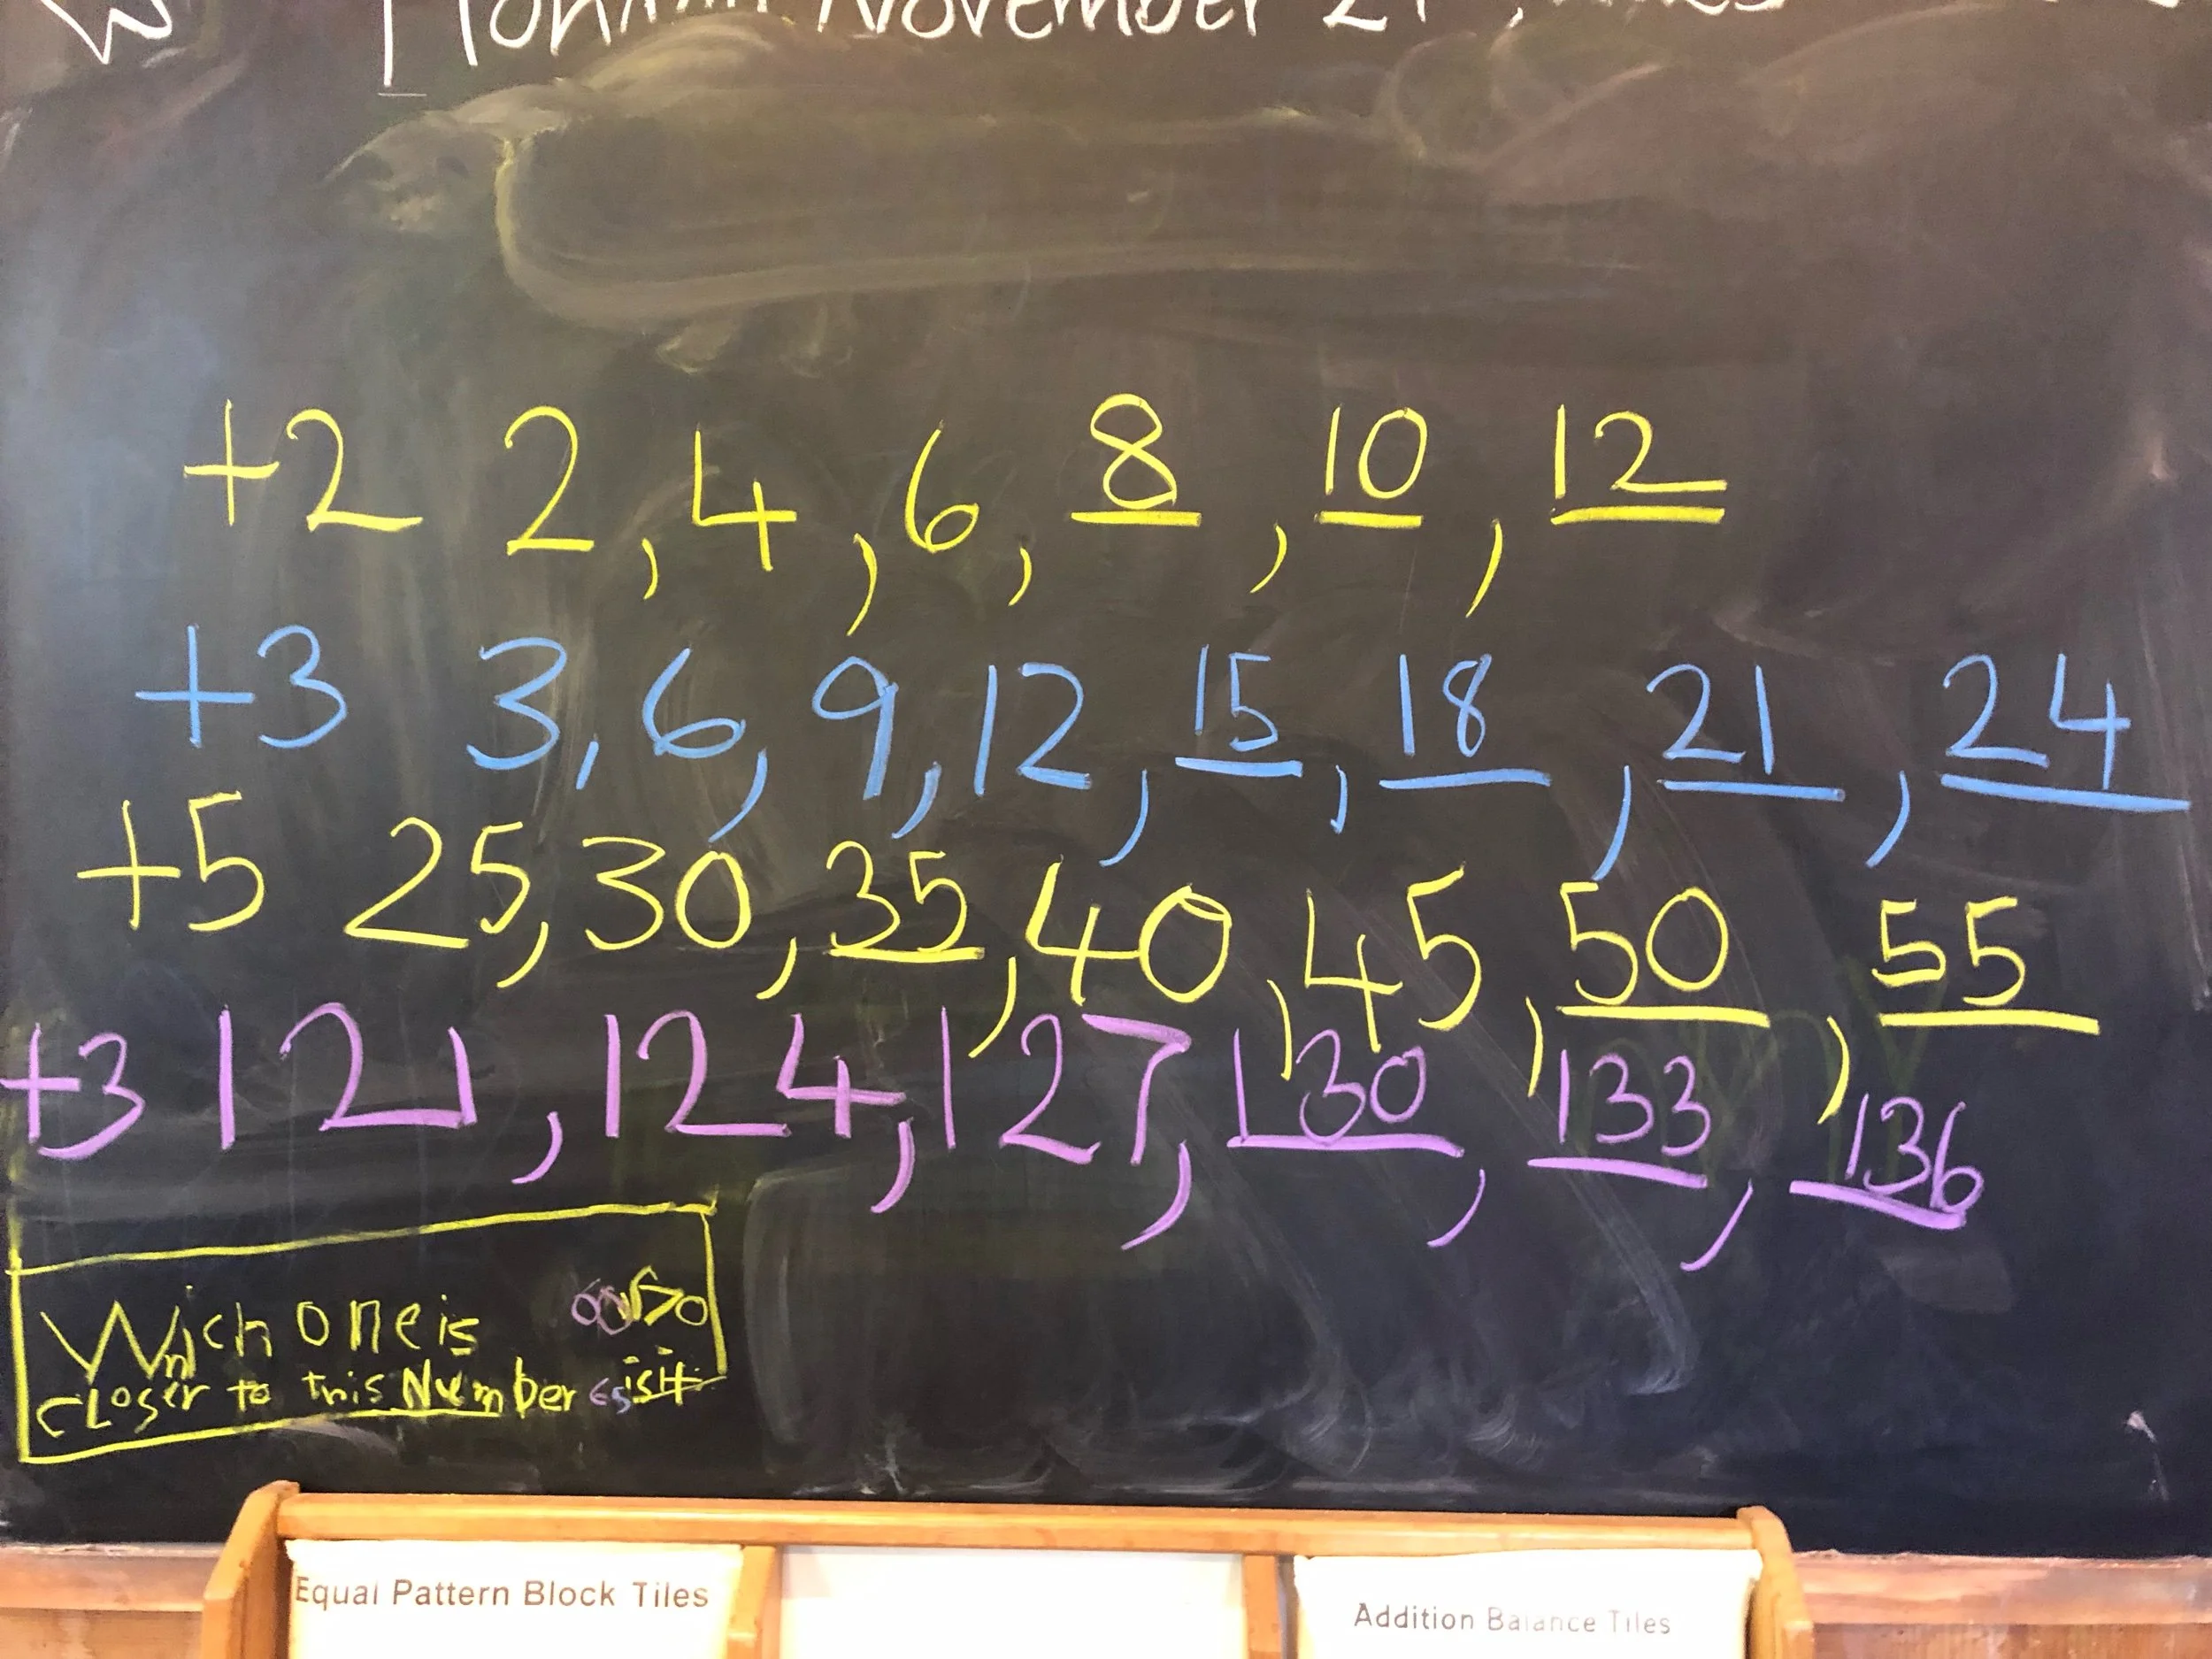 November
+2 2, 4, 6, 8, 10, 12
+3 3, 6, 9, 12, 15, 18, 21, 24
+5 25, 30, 35, 40, 45, 50, 55
+3 121, 124, 127, 130, 133, 136
Wich one is
closer to this Number 65 is it
Equal Pattern Block Tiles
Addition Balance Tiles